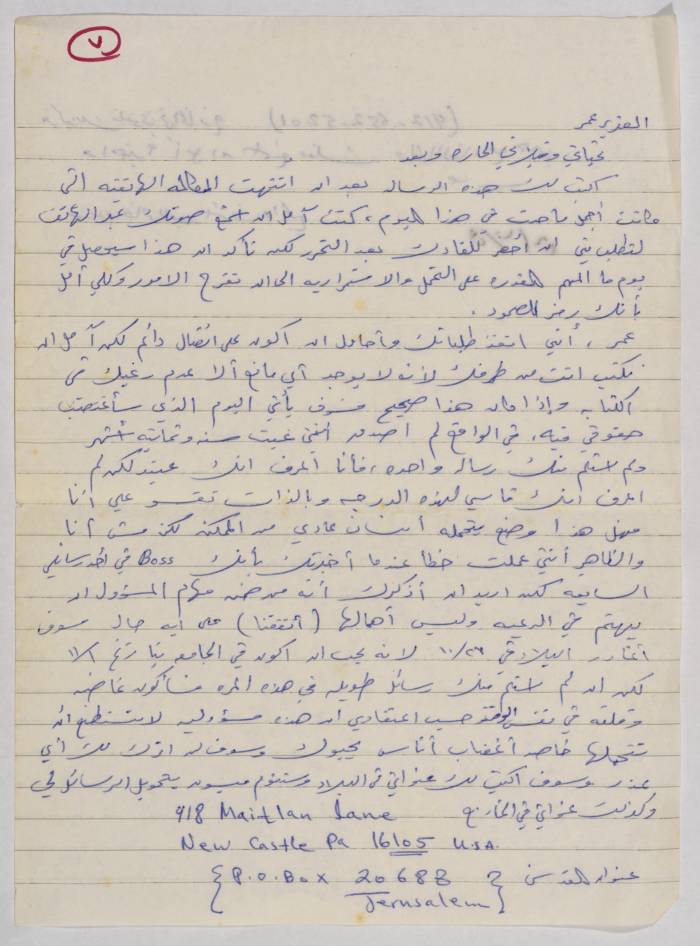 ٧
العزيز عمر
تحياتي وقبلاتي الحاره وبعد
اكتب لك هذه الرساله بعد ان انتهت المكالمه الهاتفيه التي
كانت أجمل ما حدث في هذا اليوم، كنت آمل ان اسمع صوتك عبر الهاتف
لتطلب مني ان احضر للقائك بعد التحرر لكن تأكد ان هذا سيحصل في
يوم ما المهم القدره على التحمل والاستمراريه الى ان تفرج الامور وكلي أمل
بأنك رمز للصمود.
عمر، أنني انفذ طلباتك وأحاول ان اكون على اتصال دائم لكن آمل ان
تكتب انت من طرفك لأنه لا يوجد أي مانع ألا عدم رغبتك في
الكتابه وإذا كان هذا صحيح فسوف يأتي اليوم الذي سأغتصب
حقوقي فيه، في الواقع لم اصدق أنني غبت سنه وثمانية أشهر
ولم استلم منك رساله واحده، فأنا اعرف انك عنيد لكن لم
اعرف انك قاسي لهذه الدرجه وبالذات تقسو علي أنا
مهل هذا وضع يتحمله انسان عادي من الممكن لكن مش أنا
والظاهر أنني عملت خطأ عندما أخبرتك بأنك Boss في احد رسائلي
السابقه لكن اريد ان أذكرك أنه من ضمن مهام المسؤول ان
يهتم في الرعيه وليس أهمالها (أتفقنا) على أيه حال سوف
أغادر البلاد في ١٠/٢٦ لانه يجب ان اكون في الجامعه بتاريخ ١١/١
لكن ان لم استلم منك رسائل طويله في هذه المره فسأكون غاضبه
وقلقه في نفس الوقت حسب اعتقادي ان هذه مسؤوليه لا تستطيع ان
تتحملها خاصه أغضاب أناس يحبوك وسوف لن اترك لك أي
عذر وسوف اكتب لك عنواني في البلاد وستقوم ميسون بتحويل الرسائل لي
وكذلك عنواني في الخارج
918 Maitlan Lane
New Castle Pa 16105 U.S.A.
عنوان القدس { P.O.Box 20688
Jerusalem }